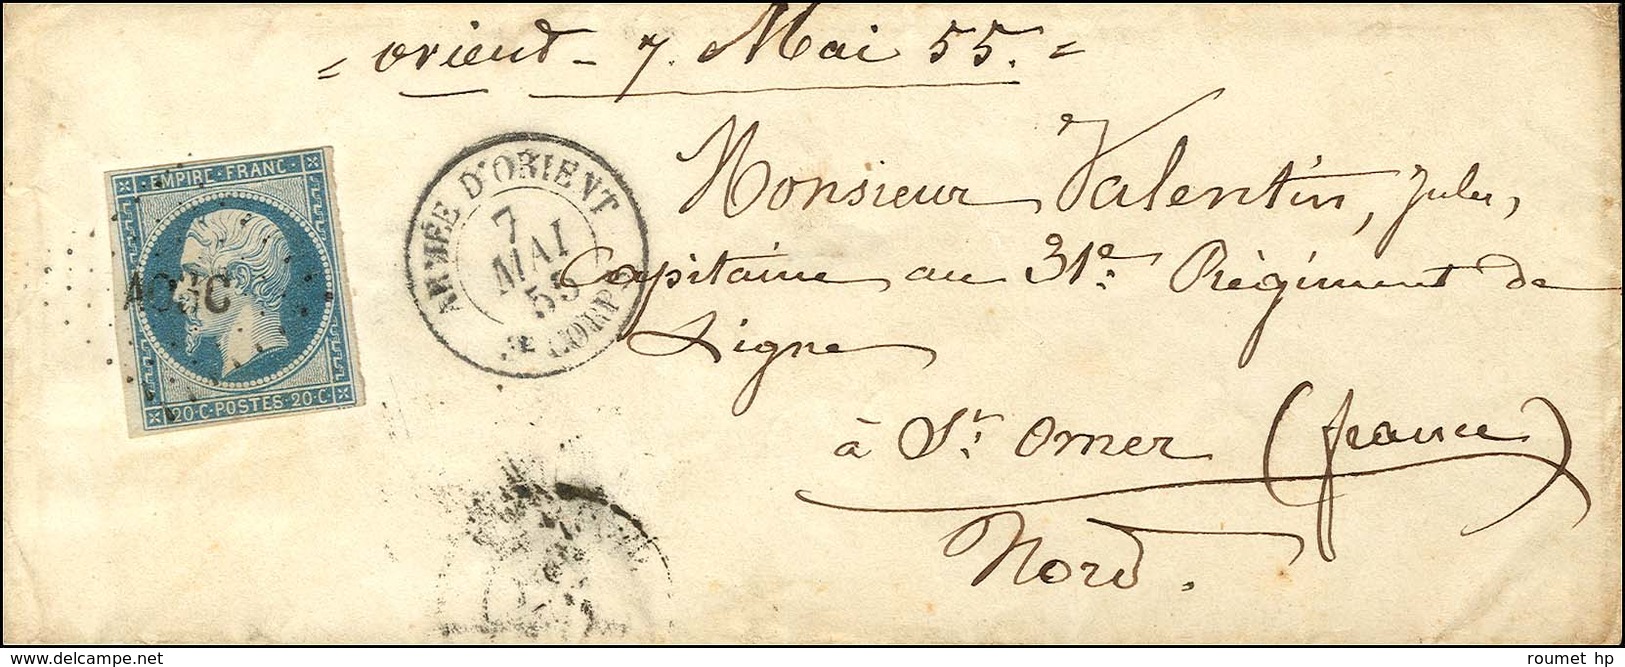 = orient - 7. Mai 55. =
EMPIRE · FRANC ·
20 · C · POSTES · 20 · C ·
ARMÉE D'ORIENT
7
MAI
55
CORPS
Monsieur Valentin, Jules,
Capitaine au 31e. Régiment de
Ligne
à St. Omer (france)
Nord.
delcampe.net
roumet hp